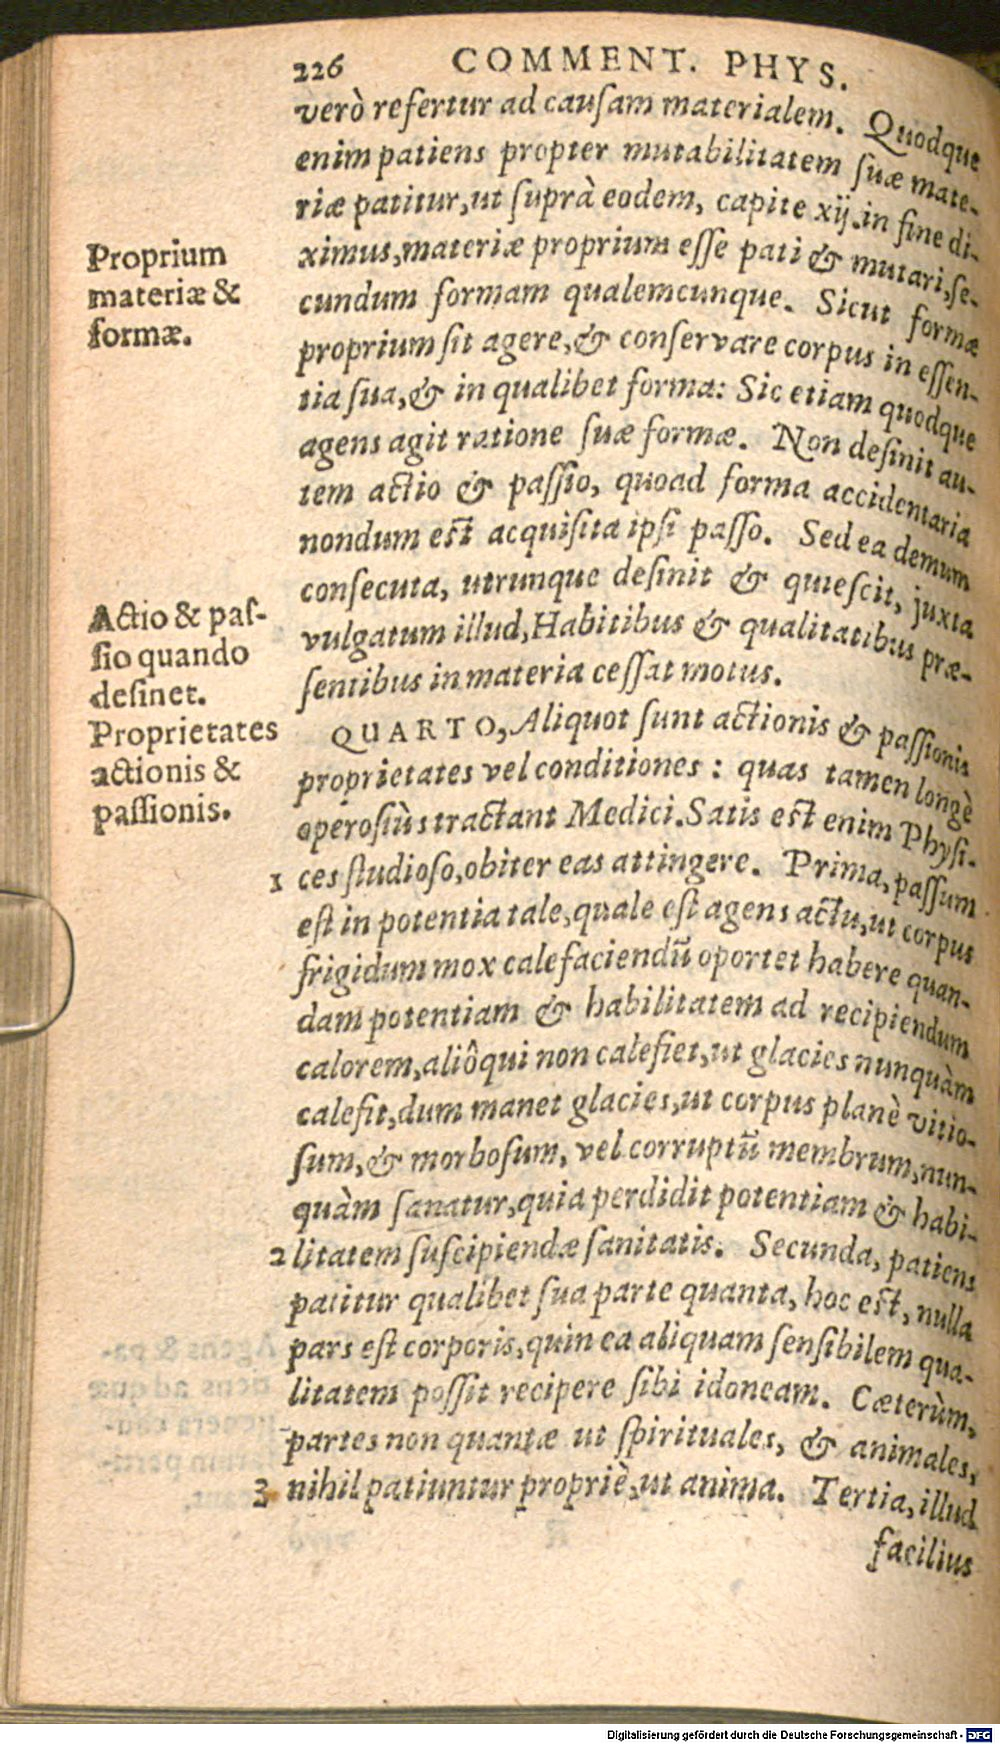 226 COMMENT. PHYS.
verò refertur ad cauſam materialem. Quodque
enim patiens propter mutabilitatem ſuæ mate-
riæ patitur, ut ſuprà eodem, capite xij. in fine di-
ximus, materiæ proprium eſſe pati & mutari, ſe-
cundum formam qualemcunque. Sicut formæ
proprium ſit agere, & conſervare corpus in eſſen-
tia ſua, & in qualibet forma: Sic etiam quodque
agens agit ratione ſuæ formæ. Non deſinit au-
tem actio & paſſio, quoad forma accidentaria
nondum eſt acquiſita ipſi paſſo. Sed ea demum
conſecuta, utrunque deſinit & quieſcit, juxta
vulgatum illud, Habitibus & qualitatibus præ-
ſentibus in materia ceſſat motus.
QUARTO, Aliquot ſunt actionis & paſſionis
proprietates vel conditiones: quas tamen longè
operoſiùs tractant Medici. Satis eſt enim Phyſi-
1 ces ſtudioſo, obiter eas attingere. Prima, paſſum
eſt in potentia tale, quale eſt agens actu, ut corpus
frigidum mox calefaciendũ oportet habere quan-
dam potentiam & habilitatem ad recipiendum
calorem, aliôqui non calefiet, ut glacies nunquàm
calefit, dum manet glacies, ut corpus planè vitio-
ſum, & morboſum, vel corruptũ membrum, nun-
quàm ſanatur, quia perdidit potentiam & habi-
2 litatem ſuſcipiendæ ſanitatis. Secunda, patiens
patitur qualibet ſua parte quanta, hoc eſt, nulla
pars eſt corporis, quin ea aliquam ſenſibilem qua-
litatem poſſit recipere ſibi idoneam. Cæterùm,
partes non quantæ ut ſpirituales, & animales,
3 nihil patiuntur propriè, ut anima. Tertia, illud
facilius
Proprium
materiæ &
formæ.
Actio & paſ-
ſio quando
deſinet.
Proprietates
actionis &
paſſionis.
Digitalisierung gefördert durch die Deutsche Forschungsgemeinschaft - DFG